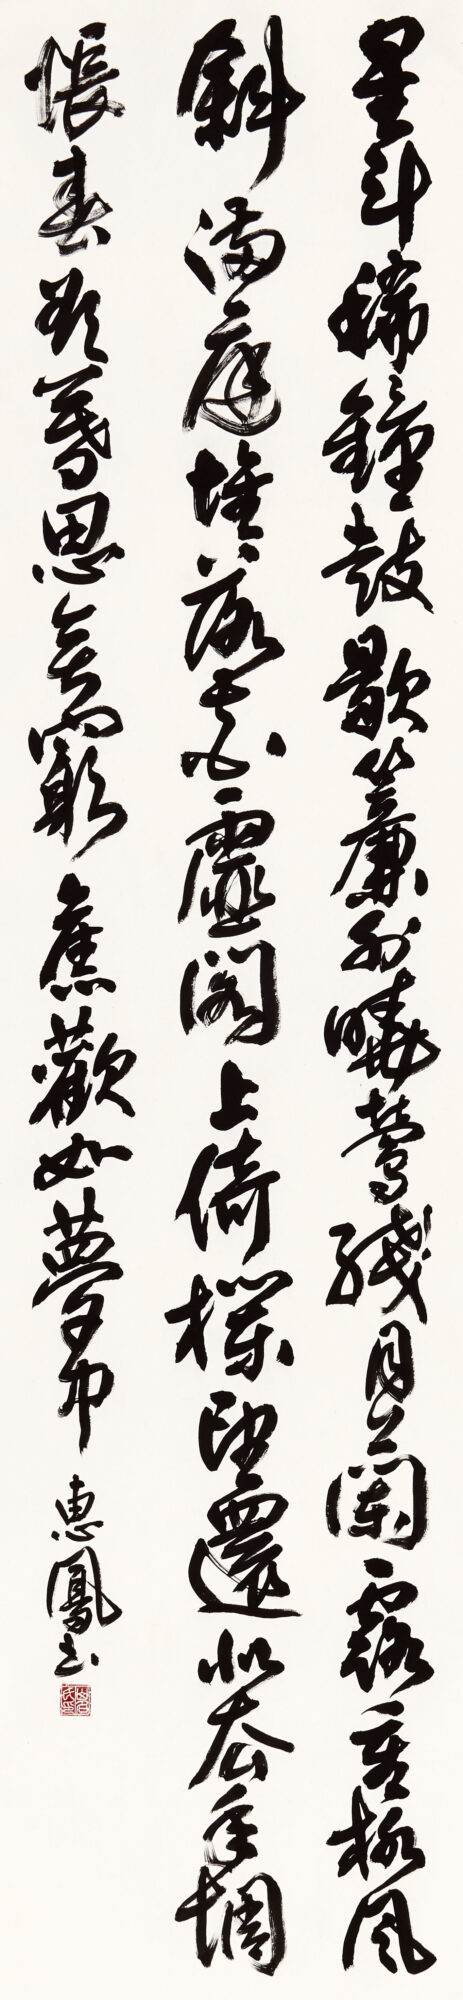 星斗稀鐘鼓歇簾外曉鶯殘月蘭露重柳風
斜滿庭堆落花虛閣上倚欄望還似去年惆
悵春欲暮思無窮舊歡如夢中
惠鳳書